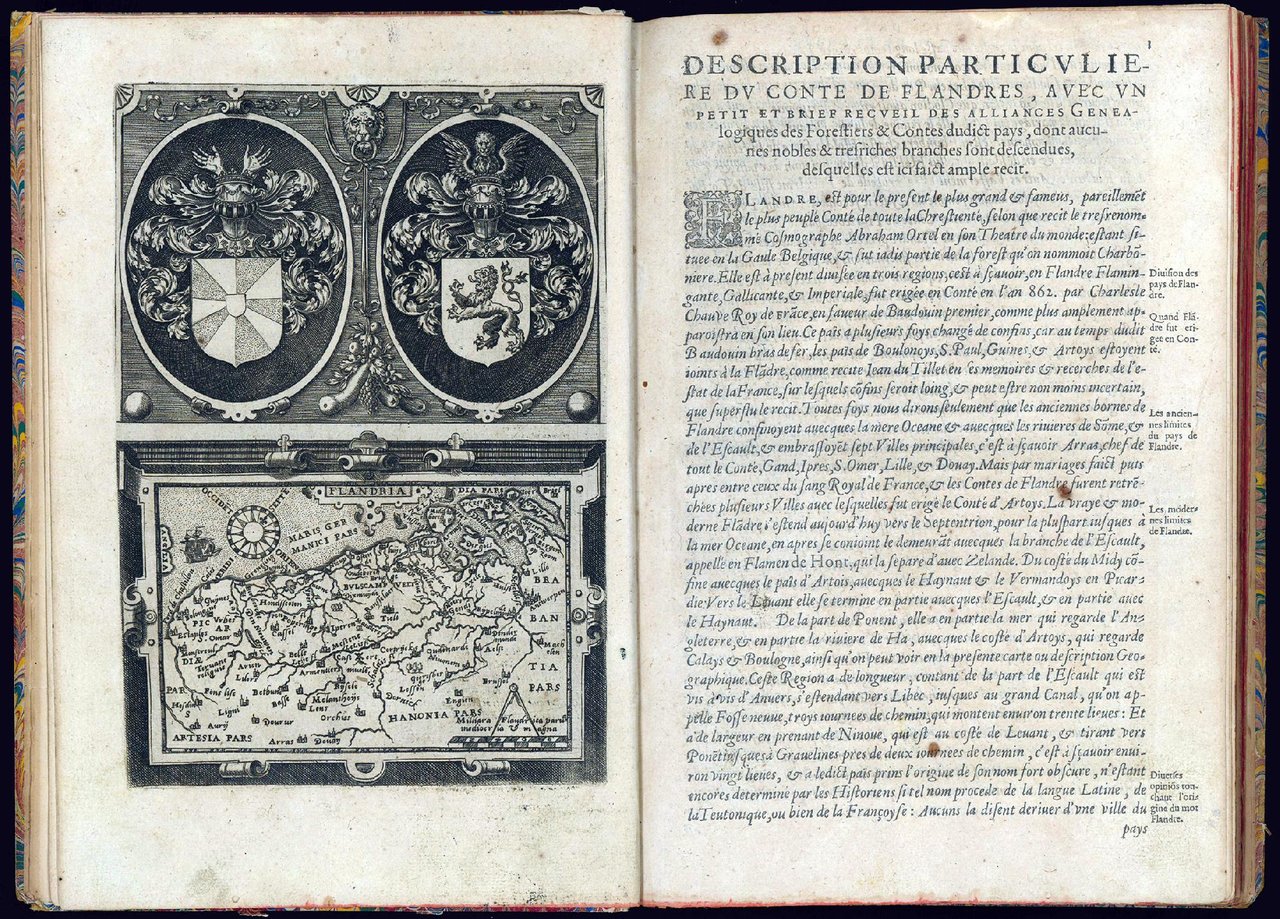 FLANDRIA
OCCIDET
MARIS GER
MANICI PARS
BVLSCAMP
Cassel
Belle
Armentiers
Lessen
Engien
Brussel
Orchies
Douay
Arras
Lens
HANONIA PARS
ARTESIA PARS
BRA
BAN
TIA
PARS
3
DESCRIPTION PARTICVLIE-
RE DV CONTE DE FLANDRES, AVEC VN
PETIT ET BRIEF RECVEIL DES ALLIANCES GENEA-
logiques des Forestiers & Contes dudict pays, dont aucu-
nes nobles & tresriches branches sont descendues,
desquelles est ici faict ample recit.
FLANDRE, est pour le present le plus grand & fameus, pareillemēt
le plus peuplé Conté de toute la Chrestienté, selon que recit le tresrenom-
mé Cosmographe Abraham Ortel en son Theatre du monde: estant si-
tuee en la Gaule Belgique, & fut iadis partie de la forest qu'on nommoit Charbō-
niere. Elle est à present diuisee en trois regions, c'est à sçauoir, en Flandre Flamin-
gante, Gallicante, & Imperiale, fut erigée en Conté en l'an 862. par Charles le
Chauve Roy de Frãce, en faueur de Baudouin premier, comme plus amplement ap-
paroistra en son lieu. Ce païs a plusieurs foys changé de confins, car au temps dudit
Baudouin bras de fer, les païs de Boulonoys, S. Paul, Guines, & Artoys estoyent
ioints à la Flãdre, comme recite Iean du Tillet en ses memoires & recerches de l'e-
stat de la France, sur lesquels cōfins seroit loing, & peut estre non moins incertain,
que superflu le recit. Toutes foys nous dirons seulement que les anciennes bornes de
Flandre confinoyent auecques la mere Oceane & auecques les riuieres de Sōme, &
de l'Escault, & embrassoyēt sept Villes principales, c'est à sçauoir Arras, chef de
tout le Conté, Gand, Ipres, S. Omer, Lille, & Douay. Mais par mariages faict puis
apres entre ceux du sang Royal de France, & les Contes de Flandre furent retrē-
chées plusieurs Villes auec lesquelles fut erigé le Conté d'Artoys. La vraye & mo-
derne Flãdre s'estend aujourd'huy vers le Septentrion, pour la pluspart iusques à
la mer Oceane, en apres se conioint le demeurãt auecques la branche de l'Escault,
appellé en Flamen de Hont, qui la separe d'auec Zelande. Du costé du Midy cō-
fine auecque le païs d'Artois, auecques le Haynaut & le Vermandoys en Picar-
die Vers le Leuant elle se termine en partie auecques l'Escault, & en partie auec
le Haynaut. De la part de Ponent, elle a en partie la mer qui regarde l'An-
gleterre, & en partie la riuiere de Ha, auecques le costé d'Artoys, qui regarde
Calays & Boulogne, ainsi qu'on peut voir en la presente carte ou description Geo-
graphique. Ceste Region a de longueur, contant de la part de l'Escault qui est
vis d'vis d'Anuers, s'estendant vers Libec, iusques au grand Canal, qu'on ap-
pelle Fosse neuue, troys iournees de chemin, qui montent enuiron trente lieues: Et
a de largeur en prenant de Ninoue, qui est au costé de Leuant, & tirant vers
Ponēt iusques à Grauelines pres de deux iournees de chemin, c'est à sçauoir enui-
ron vingt lieues, & a ledict païs prins l'origine de son nom fort obscure, n'estant
encores determiné par les Historiens si tel nom procede de la langue Latine, de
la Teutonique, ou bien de la Françoyse: Aucuns la disent deriuer d'vne ville du
pays
Diuision des
pays de Flan-
dre.
Quand Flã-
dre fut eri-
gée en Con-
té.
Les ancien-
nes limites
du pays de
Flandre.
Les moder-
nes limites
de Flandre.
Diuerses
opiniōs tou-
chant l'ori-
gine du mot
Flandre.